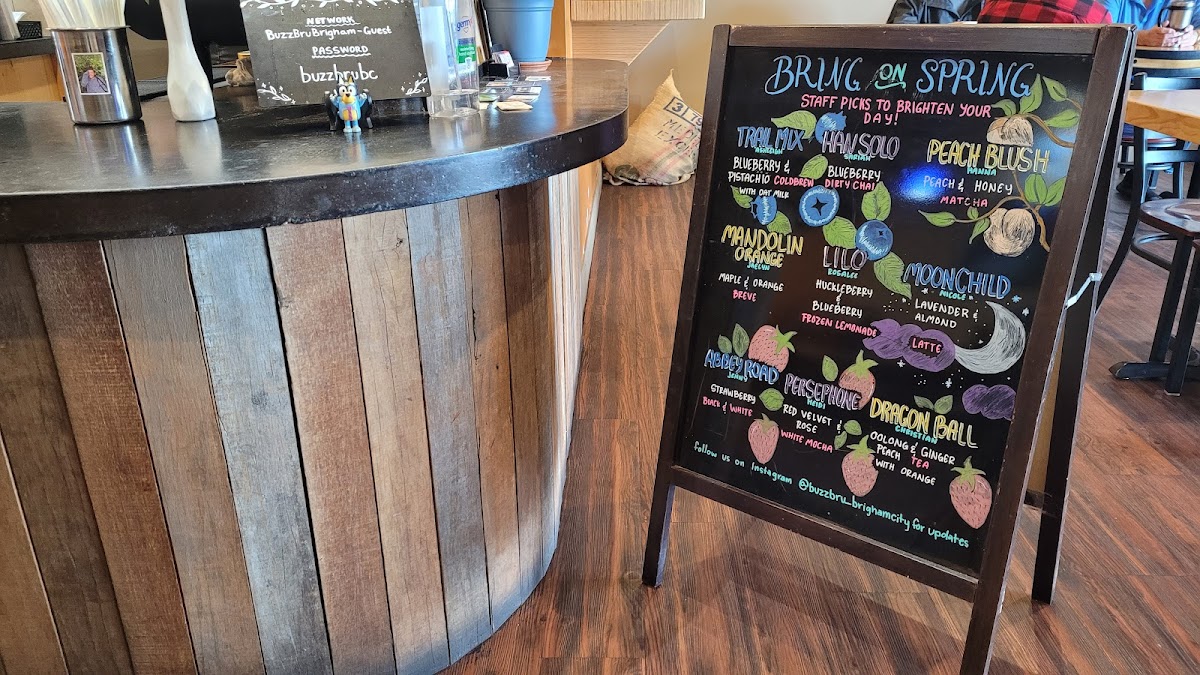 NETWORK
BuzzBruBrigham-Guest
PASSWORD
buzzbrubc
BRING ON SPRING
STAFF PICKS TO BRIGHTEN YOUR
DAY!
TRAIL MIX
BLUEBERRY &
PISTACHIO COLDBREW
WITH OAT MILK
HAN SOLO
SARIAH
BLUEBERRY
DIRTY CHAI
PEACH BLUSH
HANNA
PEACH & HONEY
MATCHA
MANDOLIN
ORANGE
JAELYN
MAPLE & ORANGE
BREVE
LILO
ROSALEE
HUCKLEBERRY
&
BLUEBERRY
FROZEN LEMONADE
MOONCHILD
NICOLE
LAVENDER &
ALMOND
LATTE
ABBEY ROAD
JENNY
STRAWBERRY
BLACK & WHITE
PERSEPHONE
HEIDI
RED VELVET &
ROSE
WHITE MOCHA
DRAGON BALL
CHRISTIAN
OOLONG & GINGER
PEACH TEA
WITH ORANGE
follow us on Instagram @buzzbru_brighamcity for updates